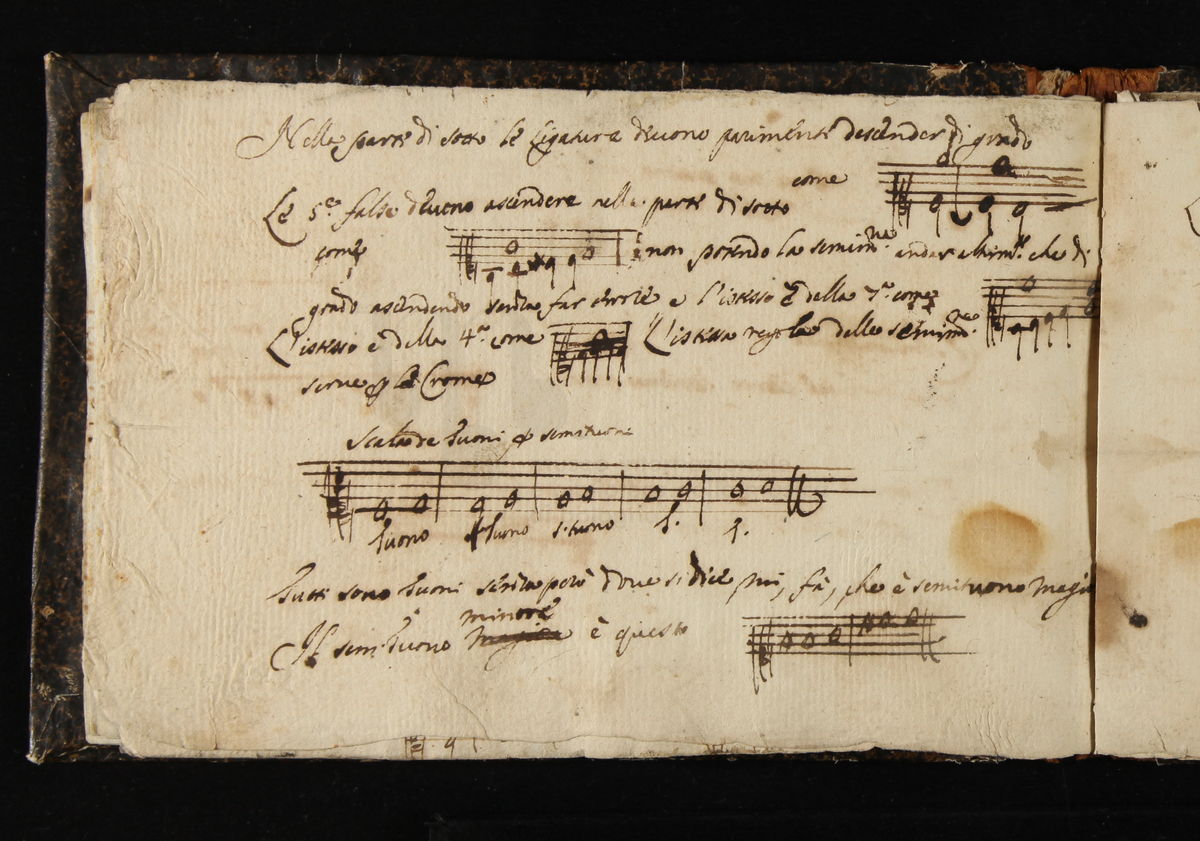 Nella parte di sotto le ligature devono parimente descender di grado
come
Le 5.e false devono ascendere nella parte di sotto
come non potendo la semim.ma andar altrim.te che di
grado ascendendo senza far e l'istesso è della 7.a come
L'istesso è della 4.a come L'istessa regola delle semim.me
serve p le Crome
Scala de tuoni e semituoni
tuono tuono s. tuono t. t.
Tutti sono tuoni senza però dove si dice mi, fà, che è semituono magio
minore
Il semituono magiore è questo